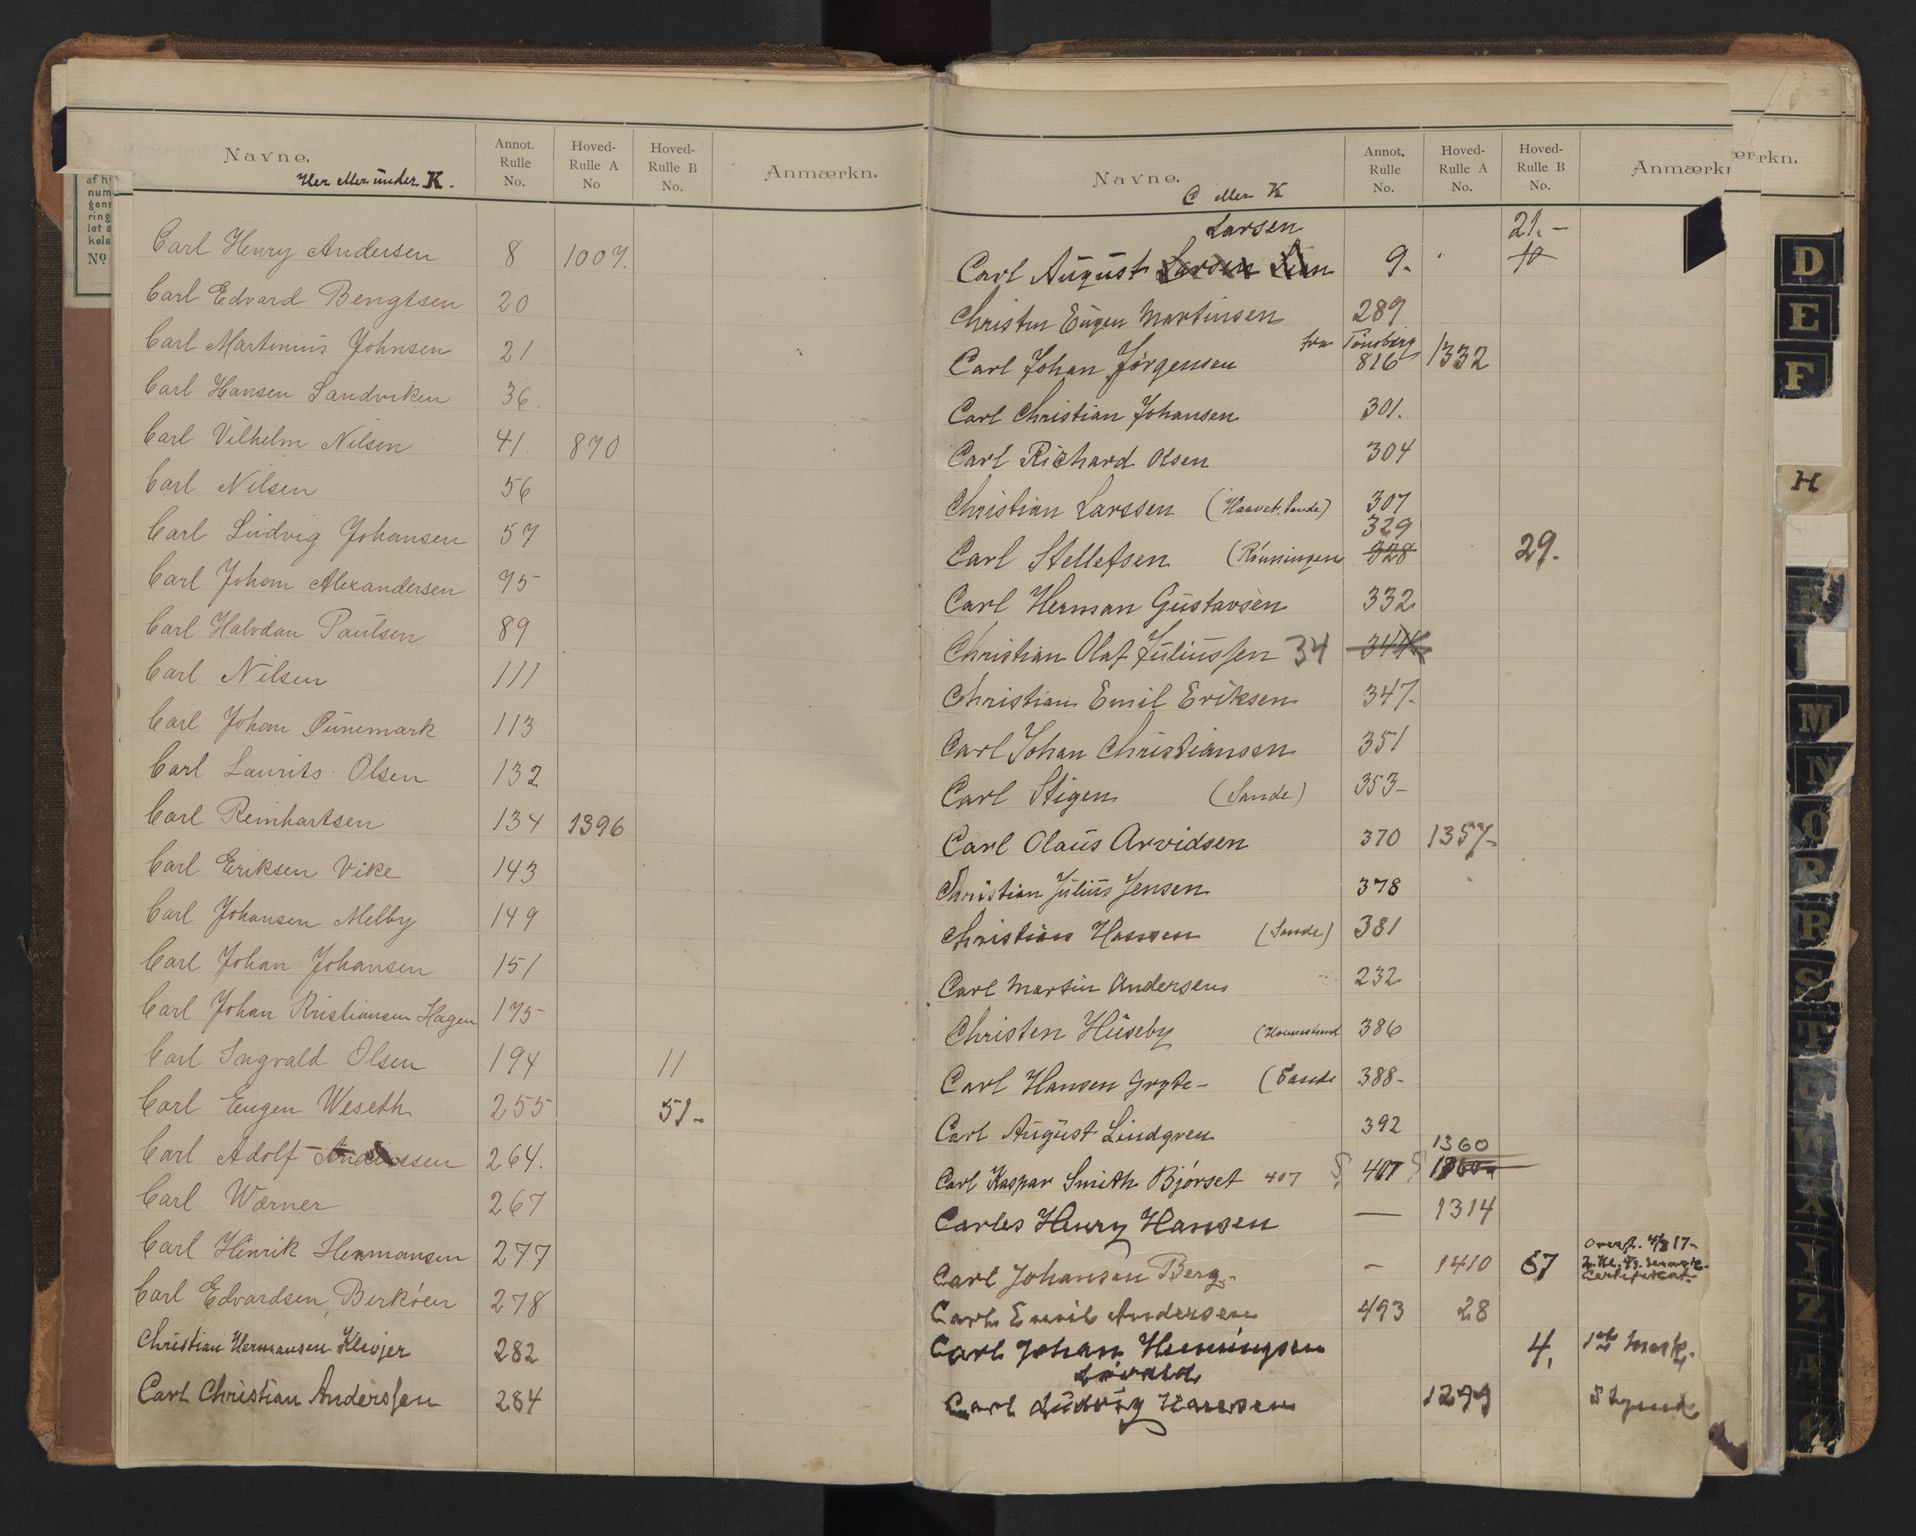 Navne.
Her eller under K.
Annot. Rulle No.
Hoved-Rulle A No
Hoved-Rulle B No.
Anmærkn.
Carl Henry Andersen 8 1007.
Carl Edvard Bengtsen 20
Carl Martinius Johnsen 21
Carl Hansen Sandviken 36.
Carl Vilhelm Nilsen 41. 870
Carl Nilsen 56
Carl Ludvig Johansen 57
Carl Johan Alexandersen 75
Carl Halvdan Paulsen 89
Carl Nilsen 111
Carl Johan 113
Carl Laurits Olsen 132
Carl Reinhartsen 134 1396
Carl Eriksen Vike 143
Carl Johansen Melby 149
Carl Johan Johansen 151
Carl Johan Kristiansen Hagen 175
Carl Sagvald Olsen 194 11
Carl Eugen Weseth 255 51-
Carl Adolf 264.
Carl Wærner 267
Carl Hinrik Hermansen 277
Carl Edvardsen Berköen 278
Christian Hermansen Klevjer 282
Carl Christian Anderssen 284
Navne.
C eller K
Annot. Rulle No.
Hoved-Rulle A No.
Hoved-Rulle B No.
Anmærkn
Larsen 21.-
Carl August Larsen 9. 10
Christen Eugen Martinsen 289
fra Tönsberg
Carl Johan Jörgensen 816 1332
Carl Christian Johansen 301.
Carl Richard Olsen 304
Christian Larssen (Haavet, Sande) 307
329
Carl Stellefsen (Rönningen 328 29.
Carl Herman Gustavsen 332
Christian Olaf Juliussen 34 344
Christian Emil Eriksen 347.
Carl Johan Christiansen 351
Carl Stigen (Sande) 353-
Carl Olaus Arvidsen 370 1357-
Christian Julius Jensen 378
Christian Hansen (Sande) 381
Carl Martin Andersen 232
Christen Huseby (Holmestrand 386
Carl Hansen Gryte- (Sande 388-
Carl August Lindgren 392
1360
Carl Kaspar Smith Bjørset 407 407
Carles Henry Hansen — 1314
Carl Johansen Berg. - 1410 67
Certifikat.
Carl Emil Andersen 493 28
Carl Johan Henningsen 4. 1ste Mask.
Carl Ludvig Hansen 1299
D
E
F
H
K
M
N
O
P
R
S
T
W
X
Y
Z